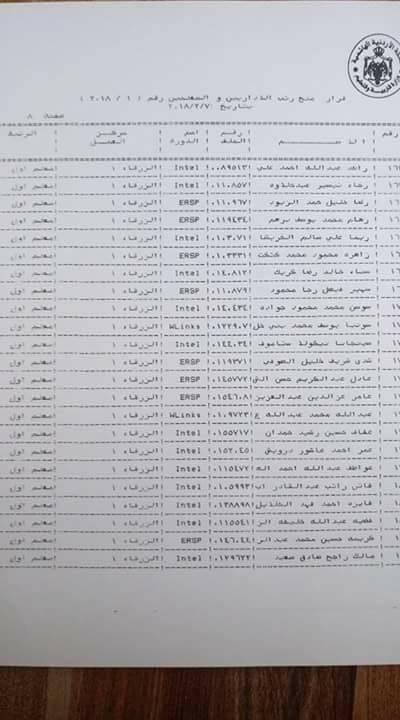 قرار منح رتب الاداريين و المعلمين رقم ( ١ / ٢٠١٨ )
بتاريخ ٢٠١٨/٢/٧
صفحة ٨
رقم الاسم رقم الملف اسم الدورة مركز العمل الرتبة
رائد عبدالله احمد علي ٠٠٨٩٥١٣ Intel الزرقاء ١ معلم اول
رجاء تيسير ٠١١٠٨٥٧ Intel الزرقاء ١ معلم اول
رضا خليل حمد الزيود ٠١١٠٩٦٧ ERSP الزرقاء ١ معلم اول
رهام محمد يوسف برهم ٠١١٩٤٣٤ ERSP الزرقاء ١ معلم اول
ريما علي سالم الخريشا ٠١٠٣٠٧١ Intel الزرقاء ١ معلم اول
زاهره محمود محمد كتكت ٠١٠٣٣٣١ ERSP الزرقاء ١ معلم اول
سناء خالد رضا كريك ٠١٤٠٨١٢ Intel الزرقاء ١ معلم اول
سهير فيصل رجا محمود ٠١١٠٨٧٩ ERSP الزرقاء ١ معلم اول
سوسن محمد محمود ٠١٤٠٤٣٤ Intel الزرقاء ١ معلم اول
سونيا يوسف محمد بني خل ٠١٢٢٩٠٧ WLinks الزرقاء ١ معلم اول
نيكولا ٠١٤٤٠٣٤ Intel الزرقاء ١ معلم اول
شذى شريف خليل الصوفي ٠١١٩٣٧١ ERSP الزرقاء ١ معلم اول
عادل عبدالكريم حسن الق ٠١٤٥٧٧٢ ERSP الزرقاء ١ معلم اول
عامر عزالدين عبدالعزيز ٠١٥٤٦٠٨ ERSP الزرقاء ١ معلم اول
عبدالله محمد عبدالله ع ٠١٠٩٧٢٣ WLinks الزرقاء ١ معلم اول
عفاف حسين رشيد حمدان ٠١٥٥٧١٧ Intel الزرقاء ١ معلم اول
عمر احمد عاشور درويش ٠١٥٢٠٤٥ Intel الزرقاء ١ معلم اول
عواطف عبدالله احمد ٠١١٥٤٧٢ Intel الزرقاء ١ معلم اول
راتب عبدالقادر اب ٠١٠٥٩٩٣ Intel الزرقاء ١ معلم اول
فايزه احمد فهد الخليل ٠١٣٨٨٩٨ Intel الزرقاء ١ معلم اول
فضيه عبدالله خليفه الز ٠١١٥٥٤١ Intel الزرقاء ١ معلم اول
كريمه حسين محمد عبدالر ٠١٤٦٠٤٤ ERSP الزرقاء ١ معلم اول
مالك راجح صادق سعيد ٠١٢٩٦٢٢ Intel الزرقاء ١ معلم اول